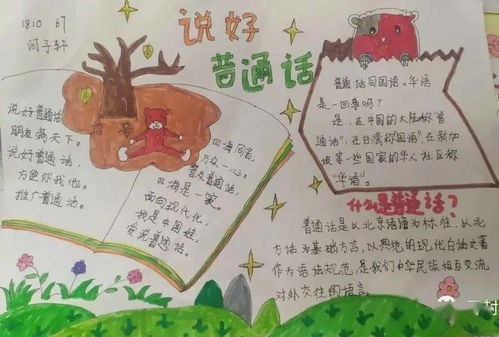 1810 67
闫子轩
说好
普通话
说好普通话,
朋友满天下。
说好普通话,
方便你我他。
推广普通话。
四海同音,
万众一心。
普及普通话,
四海是一家。
面向现代化,
我是中国娃,
会说普通话。
普通话同国语、华语
是一回事吗?
是,在中国的大陆称"普
通话",在台湾称国语",在新加
坡等一些国家的华人社区称
"华语"。
什么是普通话?
普通话是以北京语音为标准,以北
方话为基础方言,以典范的现代白话文著
作为语法规范,是我们中华民族相互交流
对外交往的语言。